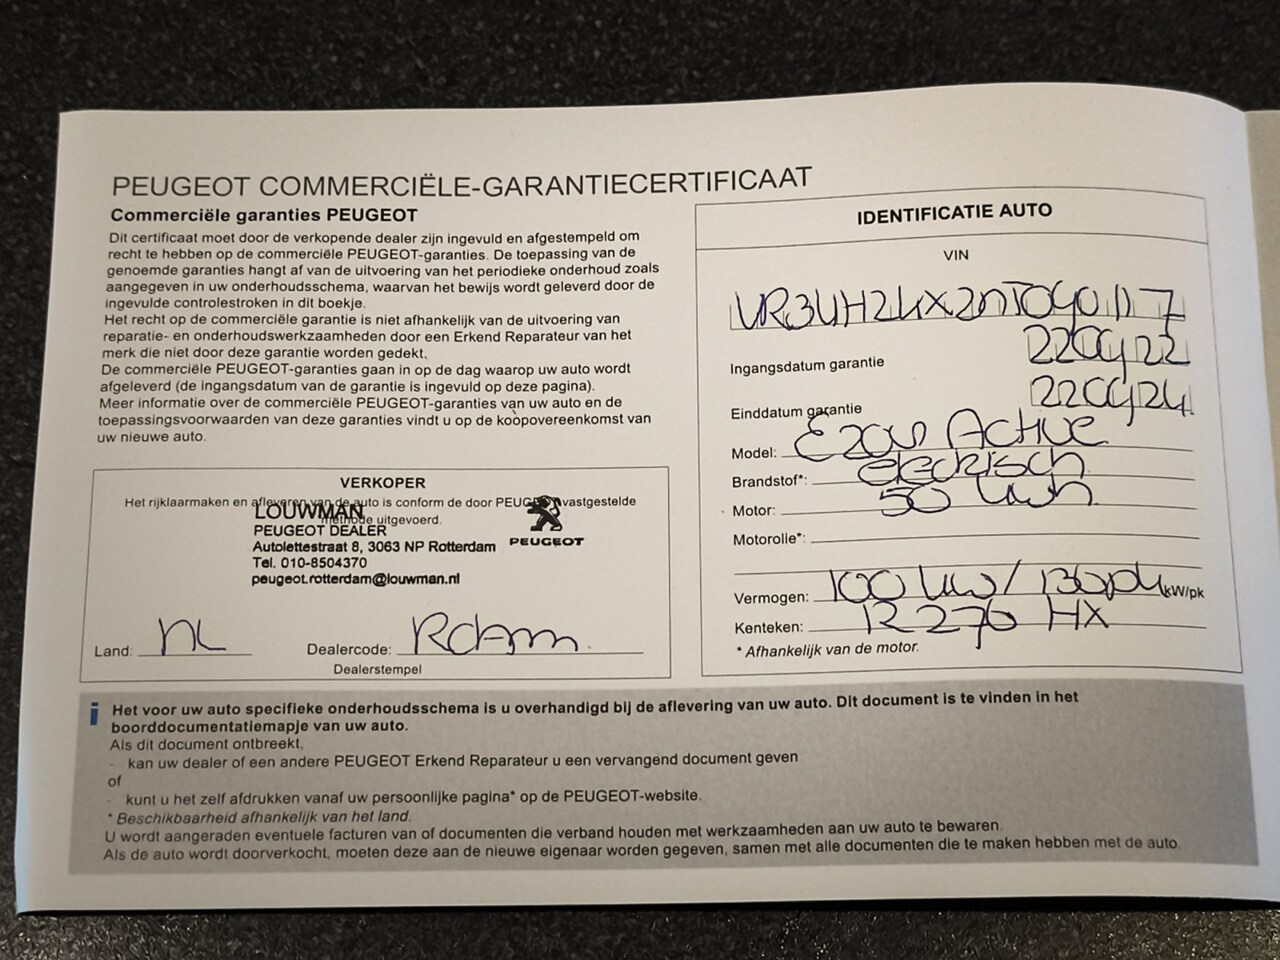 PEUGEOT COMMERCIËLE-GARANTIECERTIFICAAT
Commerciële garanties PEUGEOT
Dit certificaat moet door de verkopende dealer zijn ingevuld en afgestempeld om
recht te hebben op de commerciële PEUGEOT-garanties. De toepassing van de
genoemde garanties hangt af van de uitvoering van het periodieke onderhoud zoals
aangegeven in uw onderhoudsschema, waarvan het bewijs wordt geleverd door de
ingevulde controlestroken in dit boekje.
Het recht op de commerciële garantie is niet afhankelijk van de uitvoering van
reparatie- en onderhoudswerkzaamheden door een Erkend Reparateur van het
merk die niet door deze garantie worden gedekt.
De commerciële PEUGEOT-garanties gaan in op de dag waarop uw auto wordt
afgeleverd (de ingangsdatum van de garantie is ingevuld op deze pagina).
Meer informatie over de commerciële PEUGEOT-garanties van uw auto en de
toepassingsvoorwaarden van deze garanties vindt u op de koopovereenkomst van
uw nieuwe auto.
VERKOPER
Het rijklaarmaken en afleveren van de auto is conform de door PEUGEOT vastgestelde
methode uitgevoerd.
LOUWMAN
PEUGEOT DEALER
Autolettestraat 8, 3063 NP Rotterdam
Tel. 010-8504370
peugeot.rotterdam@louwman.nl
PEUGEOT
Land: NL Dealercode: Rdam
Dealerstempel
IDENTIFICATIE AUTO
VIN
Ingangsdatum garantie
Einddatum garantie
Model: E208 Active
Brandstof*: elektrisch
Motor: 50 kwh
Motorolie*:
Vermogen: 100 kw / 136pk kW/pk
Kenteken: R 276 HX
* Afhankelijk van de motor.
i Het voor uw auto specifieke onderhoudsschema is u overhandigd bij de aflevering van uw auto. Dit document is te vinden in het
boorddocumentatiemapje van uw auto.
Als dit document ontbreekt,
- kan uw dealer of een andere PEUGEOT Erkend Reparateur u een vervangend document geven
of
- kunt u het zelf afdrukken vanaf uw persoonlijke pagina* op de PEUGEOT-website.
* Beschikbaarheid afhankelijk van het land.
U wordt aangeraden eventuele facturen van of documenten die verband houden met werkzaamheden aan uw auto te bewaren.
Als de auto wordt doorverkocht, moeten deze aan de nieuwe eigenaar worden gegeven, samen met alle documenten die te maken hebben met de auto.